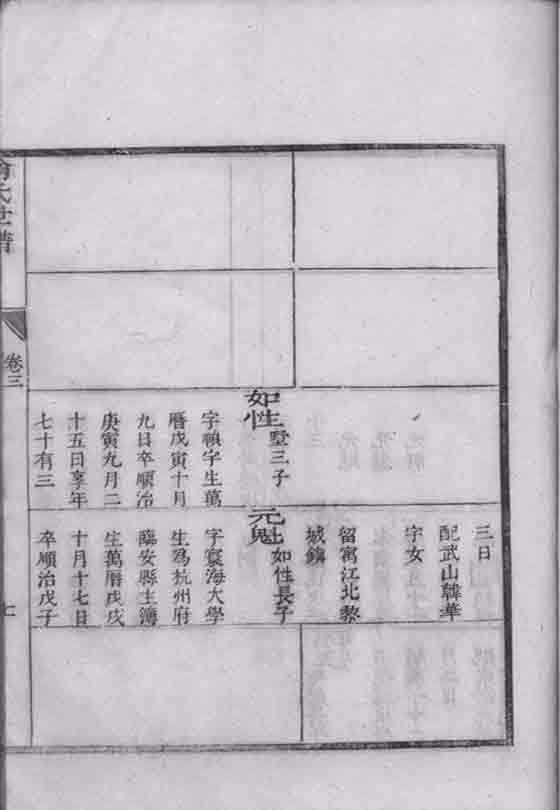 如性 墅三子
字禎宇生萬
曆戊寅十月
九日卒順治
庚寅九月二
十五日享年
七十有三
三日
配武山韓華
字女
留寓江北黎
城鎮
元魁 如性長子
字寰海大學
生爲杭州府
臨安縣主簿
生萬曆戊戌
十月十七日
卒順治戊子
氏世譜
卷三